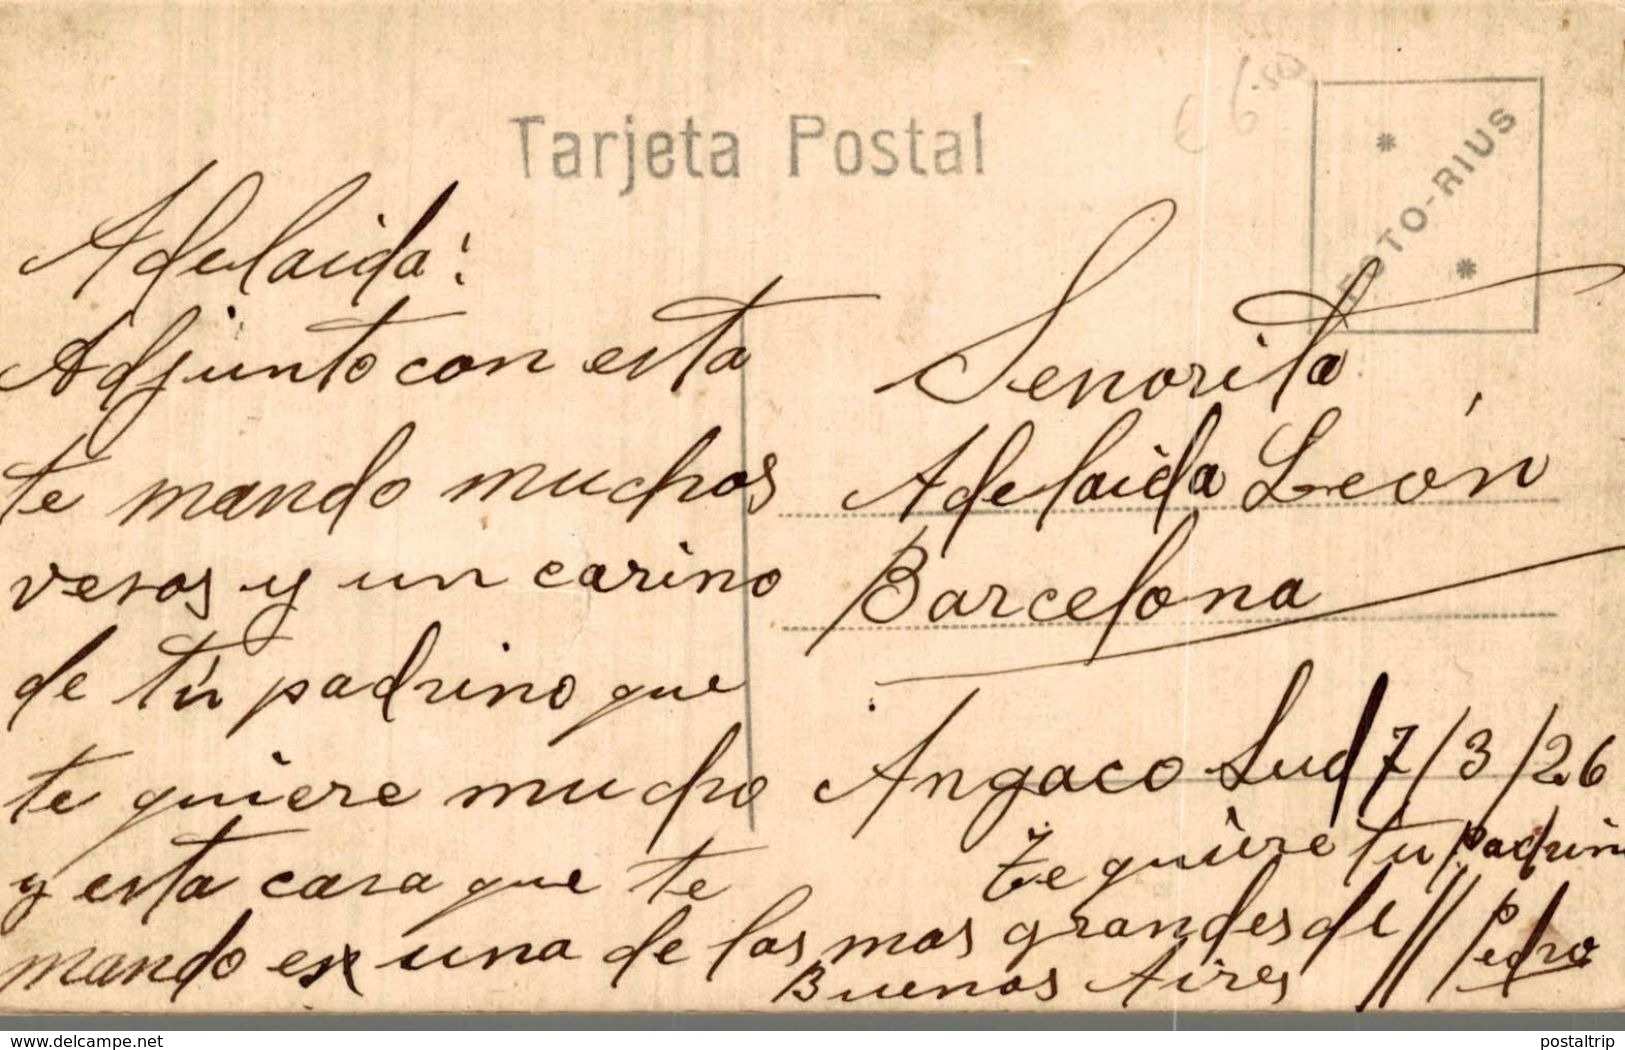 Tarjeta Postal
FOTO-RIUS
€ 6.50
Adelaida:
Adjunto con esta
te mando muchos
vesos y un carino
de tú padrino que
te quiere mucho
y esta casa que te
mando es una de las mas grandes de
Buenos Aires
Senorita
Adelaida León
Barcelona
Angaco Sud 7/3/26
Te quiere tu padrino
Pedro
delcampe.net
postaltrip